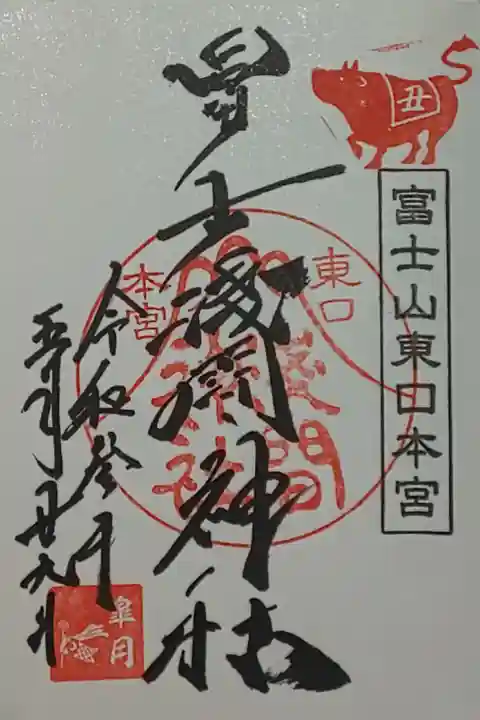 丑
富士山東口本宮
冨士浅間神社
東口
本宮
浅間
神社
令和参年
五月廿九日
皐月